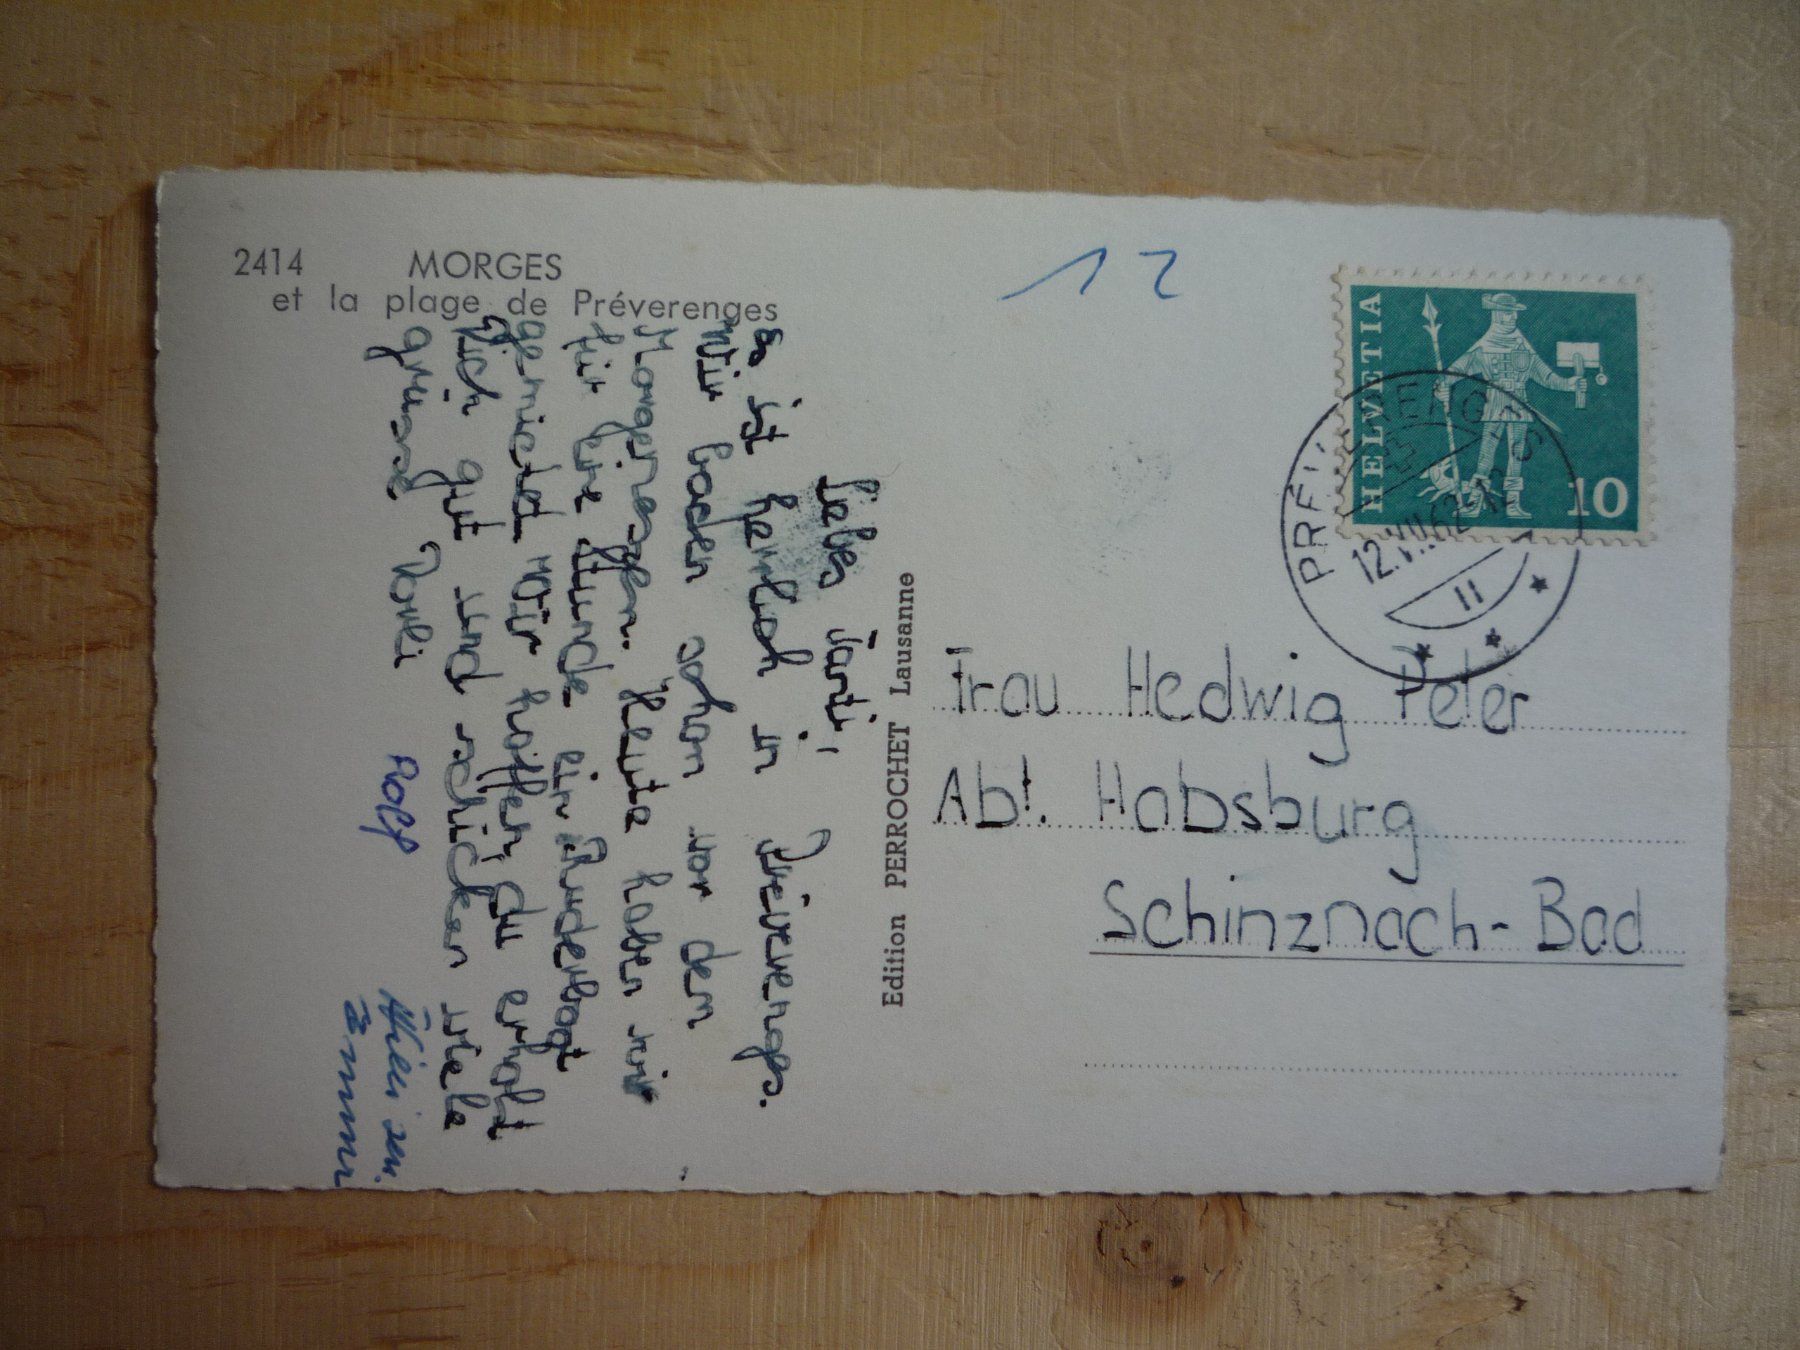 2414 MORGES
et la plage de Préverenges
Liebes Tanti,
es ist herrlich in Préverenges.
Wir baden schon vor dem
Morgenessen. Heute haben wir
für eine Stunde ein Ruderboot
gemietet. Wir hoffen, du erholst
Dich gut und schicken viele
grüsse Vorli Rolf
Edition PERROCHET Lausanne
12
HELVETIA
10
PRÉVERENGES
12.VII.62-12
Frau Hedwig Peter
Abt. Habsburg
Schinznach-Bad